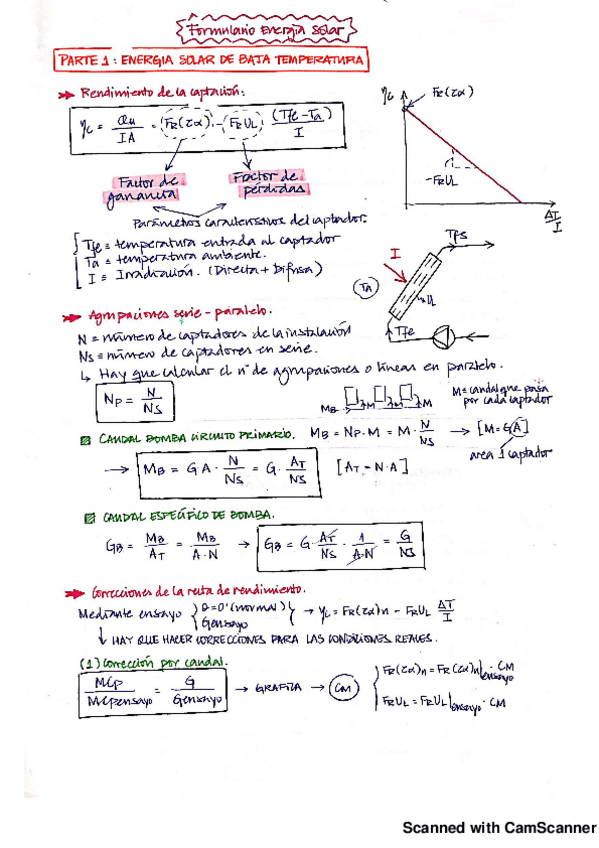 Formulario Energía Solar
PARTE 1: ENERGIA SOLAR DE BAJA TEMPERATURA
Rendimiento de la captación:
ηc = Qu / IA = FR(τα) - FRUL · (Tfe - Ta) / I
ηc
FR(τα)
-FRUL
ΔT / I
Factor de ganancia
Factor de pérdidas
Parámetros característicos del captador.
Tfe = temperatura entrada al captador
Ta = temperatura ambiente.
I = Irradiación. (Directa + Difusa)
Tfs
I
Ta
UL
Tfe
Agrupaciones serie-paralelo.
N = número de captadores de la instalación
Ns = número de captadores en serie.
↳ Hay que calcular el nº de agrupaciones o líneas en paralelo.
NP = N / NS
MB M M M
M = caudal que pasa por cada captador
CAUDAL BOMBA CIRCUITO PRIMARIO. MB = NP · M = M · N / NS → [M = G A]
area 1 captador
→ MB = G A · N / NS = G · AT / NS [AT = N · A]
CAUDAL ESPECÍFICO DE BOMBA.
GB = MB / AT = MB / A·N → GB = G · AT / NS · 1 / A·N = G / NS
Correcciones de la recta de rendimiento.
Mediante ensayo { θ=0º (normal) Gensayo } → ηc = FR(τα)n - FRUL ΔT / I
↓ HAY QUE HACER CORRECCIONES PARA LAS CONDICIONES REALES.
(1) Corrección por caudal.
MCp / MCpensayo = G / Gensayo → GRAFICA → CM
FR(τα)n = FR(τα)n|ensayo · CM
FRUL = FRUL|ensayo · CM
Scanned with CamScanner